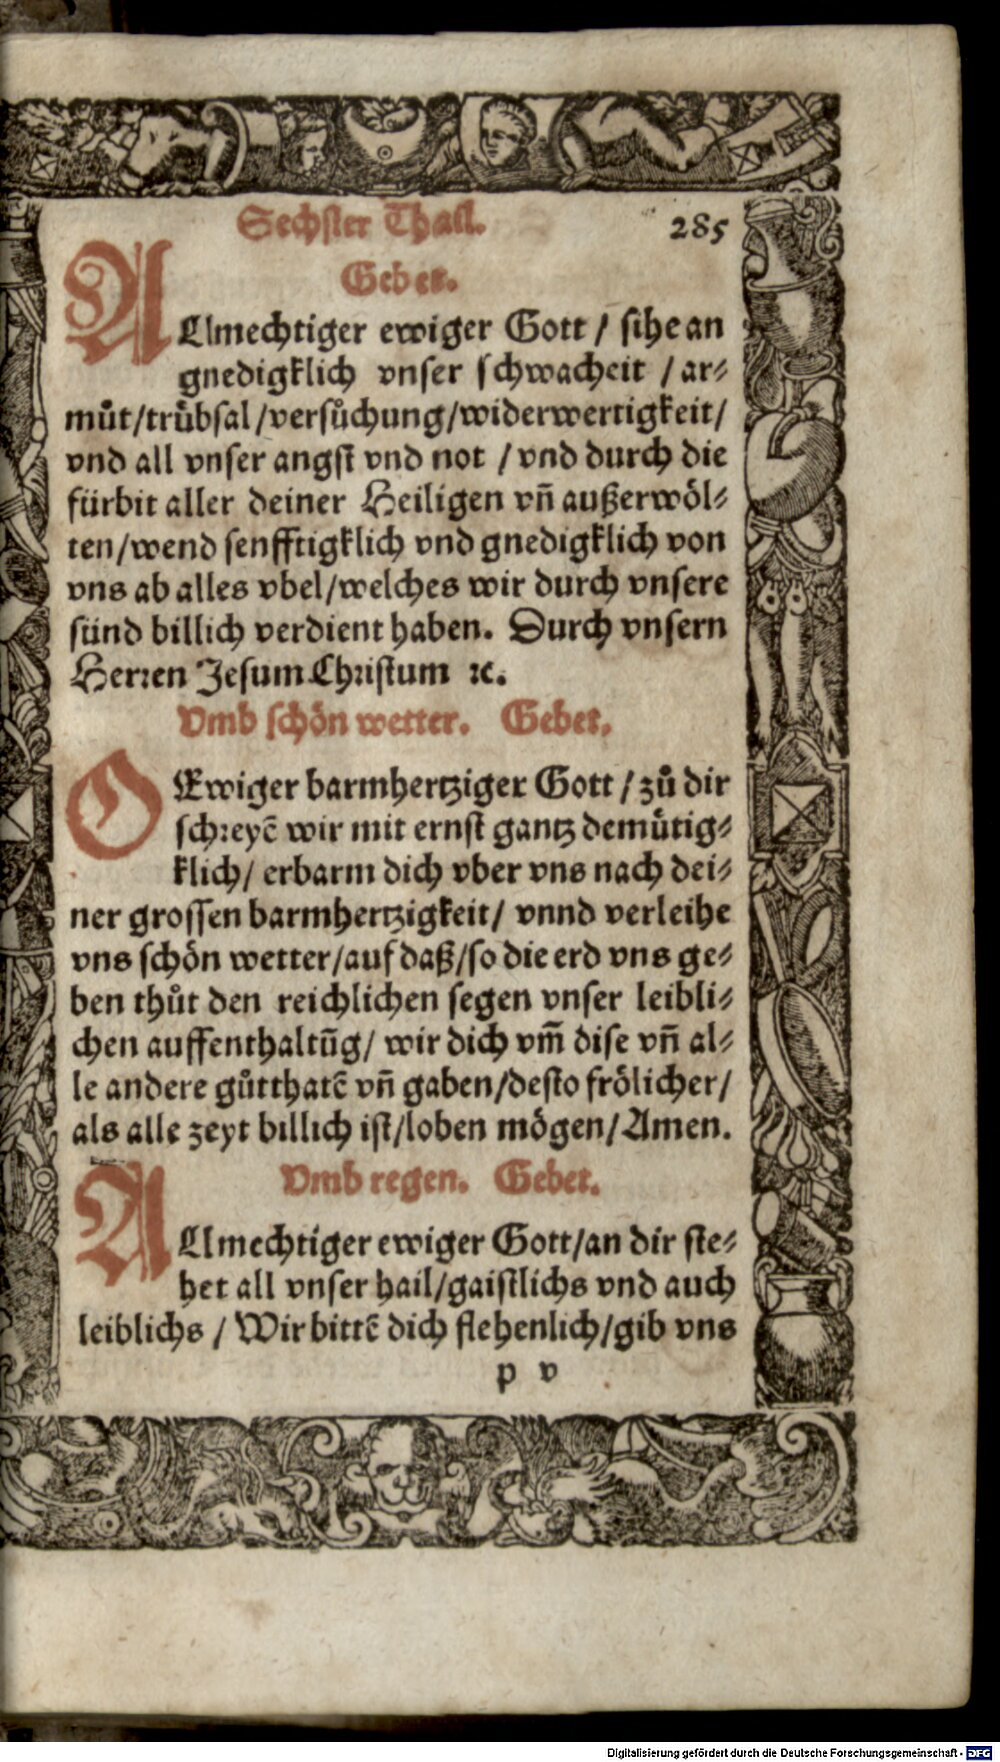 Sechster Thail. 285
Gebet.
ALlmechtiger ewiger Gott / sihe an
gnedigklich vnser schwacheit / ar⸗
můt/trůbsal/versůchung/widerwertigkeit/
vnd all vnser angst vnd not / vnd durch die
fürbit aller deiner Heiligen vñ außerwöl⸗
ten/wend senfftigklich vnd gnedigklich von
vns ab alles vbel/welches wir durch vnsere
sünd billich verdient haben. Durch vnsern
Herren Jesum Christum ꝛc.
Vmb schön wetter. Gebet.
OEwiger barmhertziger Gott / zů dir
schreyẽ wir mit ernst gantz demütig⸗
klich/ erbarm dich vber vns nach dei⸗
ner grossen barmhertzigkeit/ vnnd verleihe
vns schön wetter/auf daß/so die erd vns ge⸗
ben thůt den reichlichen segen vnser leibli⸗
chen auffenthaltũg/ wir dich vm̃ dise vñ al⸗
le andere gůtthatẽ vñ gaben/desto frölicher/
als alle zeyt billich ist/loben mögen/Amen.
Vmb regen. Gebet.
ALlmechtiger ewiger Gott/an dir ste⸗
het all vnser hail/gaistlichs vnd auch
leiblichs / Wir bittẽ dich flehenlich/gib vns
p v
Digitalisierung gefördert durch die Deutsche Forschungsgemeinschaft - DFG